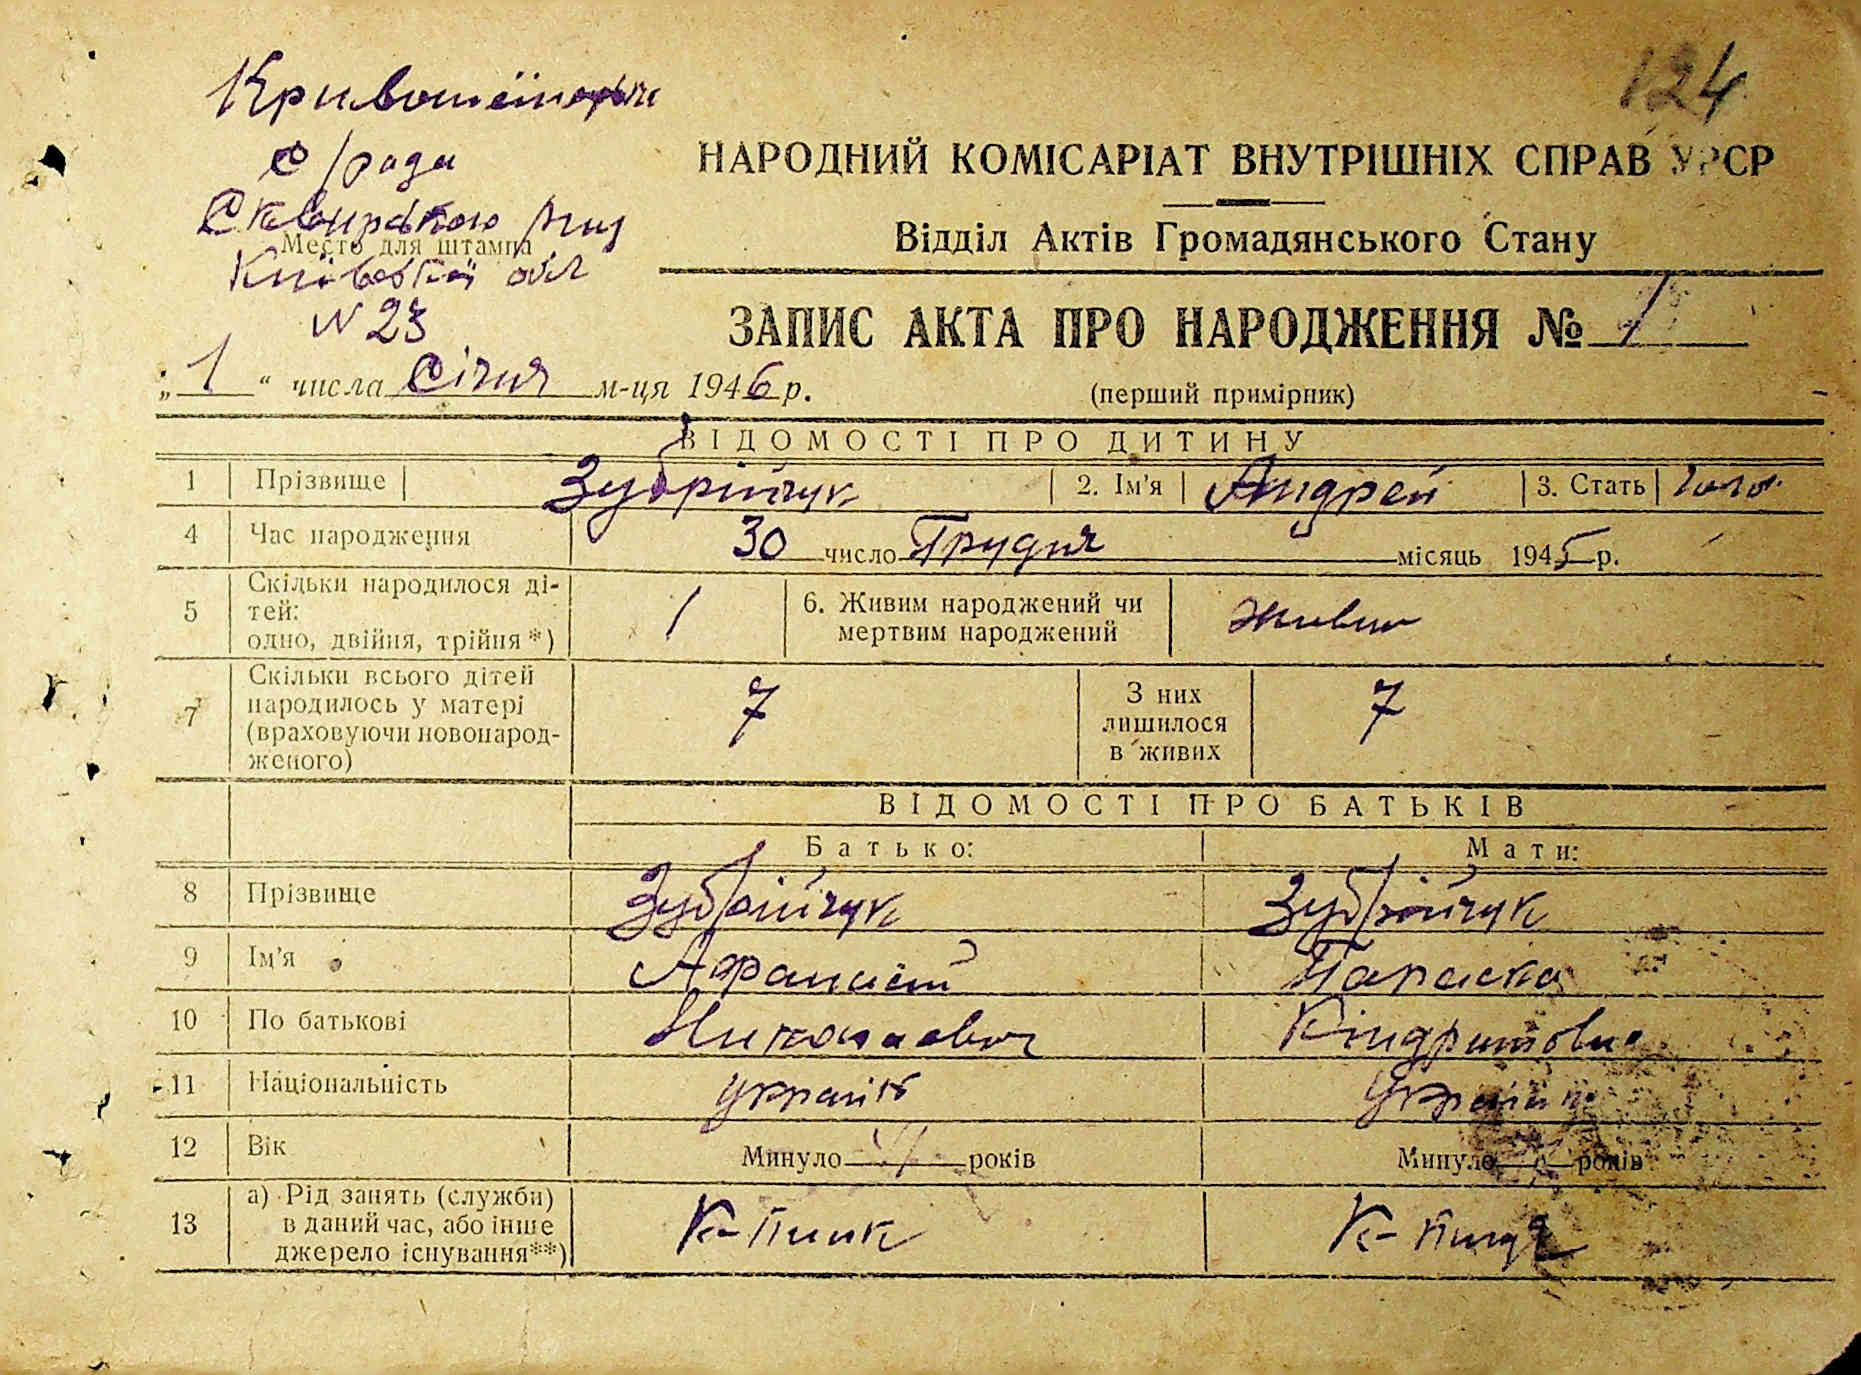 124
Кривошеїнська
с/рада
Сквирського р-ну
Место для штампа
Київської обл
N 23
НАРОДНИЙ КОМІСАРІАТ ВНУТРІШНІХ СПРАВ УРСР
Відділ Актів Громадянського Стану
ЗАПИС АКТА ПРО НАРОДЖЕННЯ № 1
„1“ числа Січня м-ця 1946 р.
(перший примірник)
ВІДОМОСТІ ПРО ДИТИНУ
1 Прізвище Зубрійчук 2. Ім'я Андрей 3. Стать чол.
4 Час народження 30 число Грудня місяць 1945 р.
5 Скільки народилося ді-
тей:
одно, двійня, трійня*) 1
6. Живим народжений чи
мертвим народжений живим
7 Скільки всього дітей
народилось у матері
(враховуючи новонарод-
женого) 7
З них
лишилося
в живих 7
ВІДОМОСТІ ПРО БАТЬКІВ
Батько: Мати:
8 Прізвище Зубрійчук Зубрійчук
9 Ім'я Афанасій Параска
10 По батькові Николаевич Кіндратовна
11 Національність українець українка
12 Вік Минуло років Минуло років
13 а) Рід занять (служби)
в даний час, або інше
джерело існування**) К-пник К-пниця